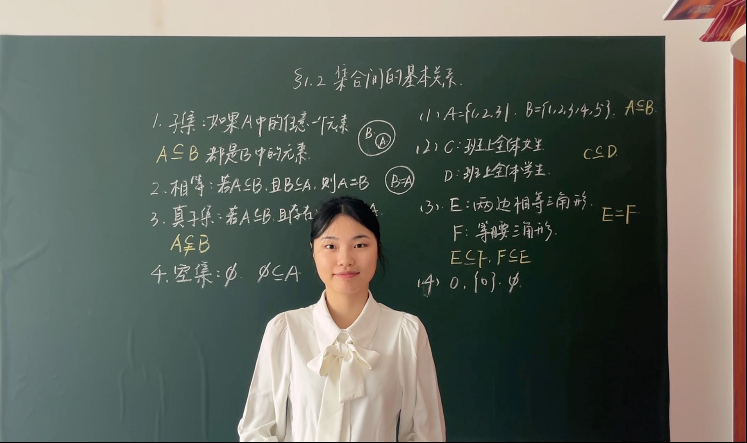 §1.2 集合间的基本关系.
1. 子集:如果A中的任意一个元素
A⊆B 都是B中的元素.
B A
2. 相等:若A⊆B,且B⊆A,则A=B
B=A
3. 真子集:若A⊆B,且存在 A.
A⫋B
4. 空集:∅. ∅⊆A
(1) A={1,2,3}. B={1,2,3,4,5}. A⊆B.
(2) C:班上全体女生
C⊆D.
D:班上全体学生.
(3). E:两边相等三角形.
E=F
F:等腰三角形.
E⊆F, F⊆E
(4) 0,{0}.∅.